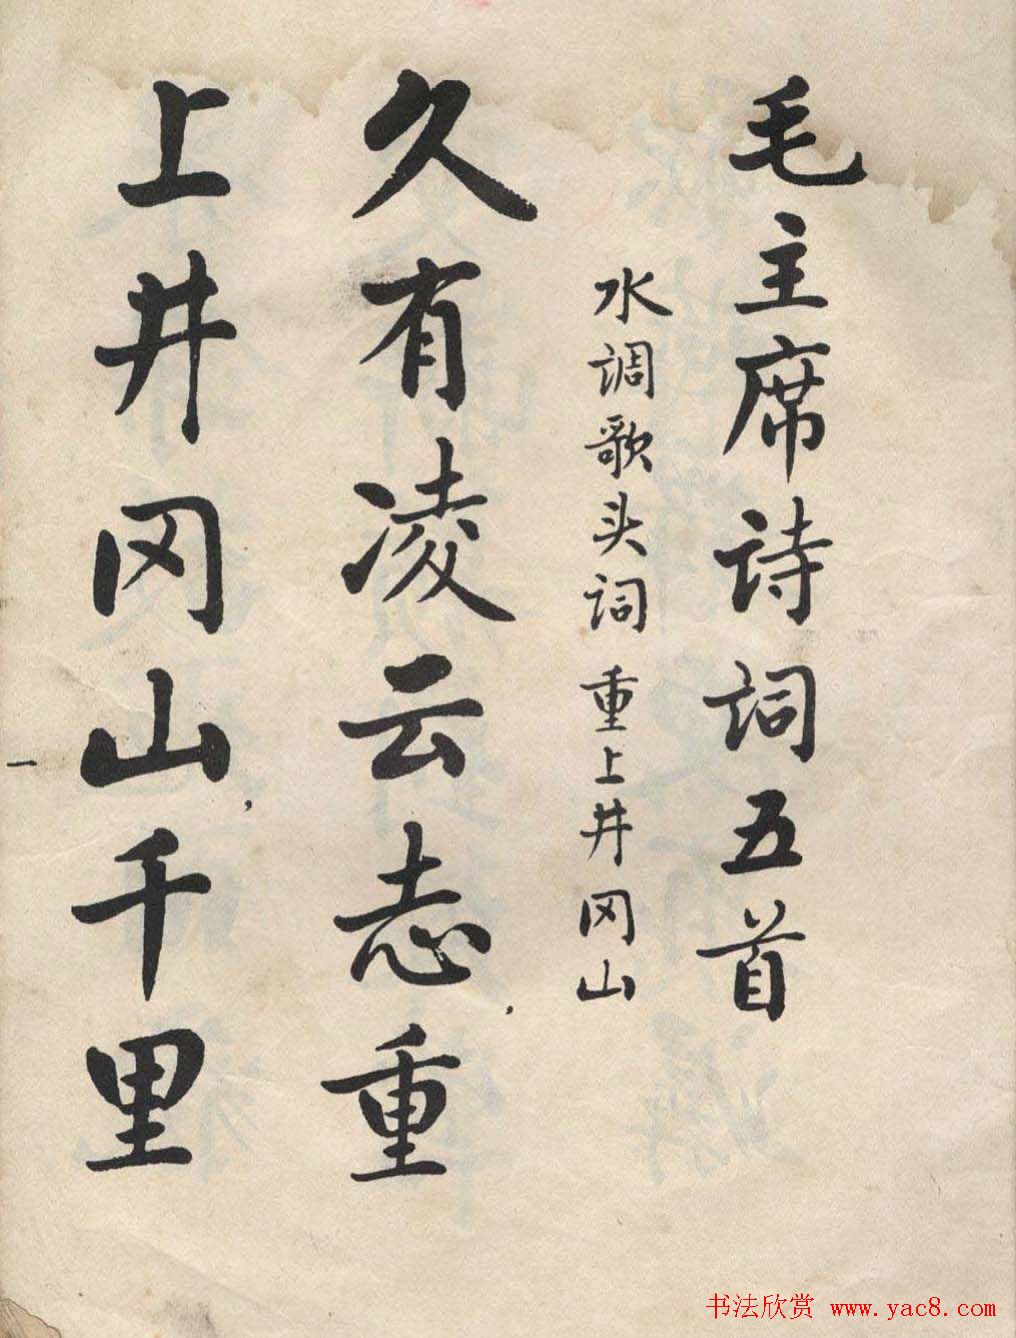 毛主席诗词五首
水调歌头词 重上井冈山
久有凌云志,重
上井冈山,千里
一
书法欣赏 www.yac8.com